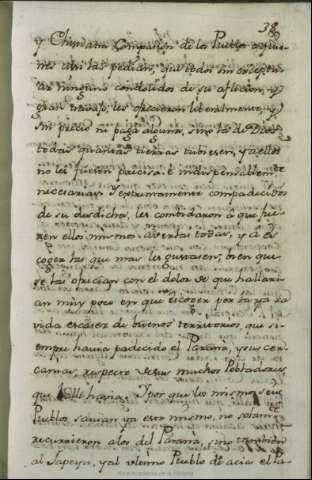 38
y Chiriatu Compasion de los Pueblos
nes asi las pedian, que todos sin exceptu-
ar ninguno condolidos de su afliccion, y
gran trabajo, les ofrecieron liberalmente, y
sin precio ni paga alguna, sino la de Dios
todas quantas tierras tubiesen, y a ellos
no les fuesen precisa é indispensablem.te
necesarias. Y estrañamente compadecidos
de su desdicha, les combidaron á que fue-
sen ellos mismos a verlas todas, y á es-
coger las que mas les gustasen; bien que
se las ofrecian con el dolor de que hallari-
an muy poco en que escoger por la ya sa-
vida escasez de buenos territorios, que si-
empre havia padecido el Parana, y sus cer-
canias, respecto de sus muchos Pobladores,
que alli havia. Y por que los mismos seis
Pueblos savian ya esto mismo, no solam.te
recurrieron a los del Parana, sino tambien
al Yapeyu, y al ultimo Pueblo de acia el Pa-